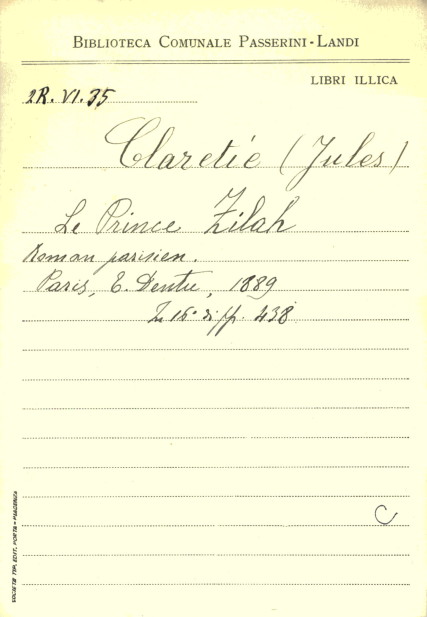 BIBLIOTECA COMUNALE PASSERINI-LANDI
LIBRI ILLICA
2R. VI. 35
Claretie (Jules)
Le Prince Zilah
Roman parisien.
Paris, E. Dentu, 1889
In 16° di pp. 438
C
SOCIETÀ TIP. EDIT. PORTA - PIACENZA